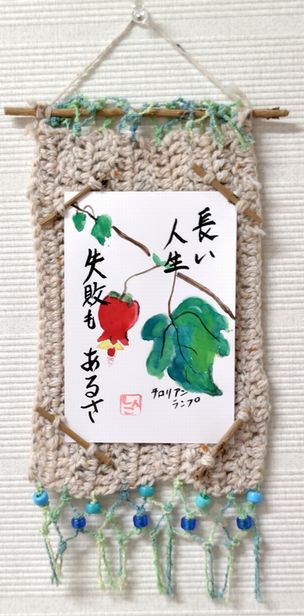 長い
人生
失敗も
あるさ
チロリアン
ランプ